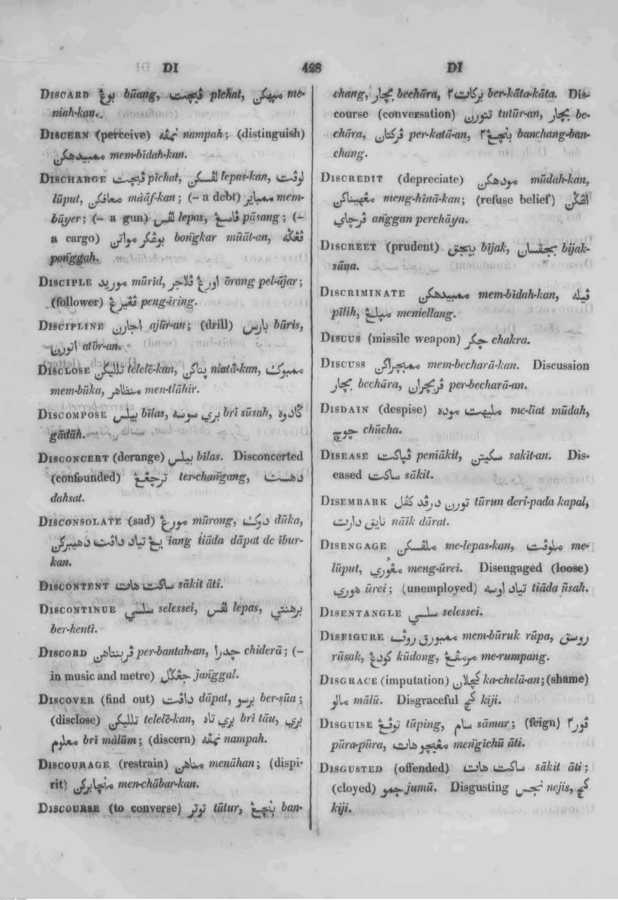 DI 428 DI
DISCARD بوڠ būang, ڤيچت pīchat, مپيهكن me-
niah-kan.
DISCERN (perceive) نمڤه nampah; (distinguish)
ممبيدهكن mem-bīdah-kan.
DISCHARGE ڤيچت pīchat, لڤسكن lepas-kan, لوڤت
lūput, معافكن māāf-kan; (– a debt) ممباير mem-
bāyer; (– a gun) لڤس lepas, ڤاسڠ pāsang; (–
a cargo) بوڠكر مواتن bongkar mūāt-an, ڤڠگه
ponggah.
DISCIPLE موريد mūrid, اورڠ ڤلاجر ōrang pel-ājar;
(follower) ڤڠيرڠ peng-īring.
DISCIPLINE اجارن ajār-an; (drill) بارس bāris,
اتورن atōr-an.
DISCLOSE تللیكن telelē-kan, پتاكن niatā-kan, ممبوك
mem-būka, منتظاهر men-tlāhir.
DISCOMPOSE بيلس bīlas, بري سوسه brī sūsah, گادوه
gādūh.
DISCONCERT (derange) بيلس bīlas. Disconcerted
(confounded) ترچڠڠ ter-changang, دهست
dahsat.
DISCONSOLATE (sad) مورڠ mūrong, دوك dūka,
يڠ تياد داڤت دهيبركن iang tiāda dāpat de ībur-
kan.
DISCONTENT ساكت هات sākit āti.
DISCONTINUE سلسي selessei, لڤس lepas, برهنتي
ber-henti.
DISCORD ڤربنتاهن per-bantah-an, چدرا chiderā; (–
in music and metre) جڠگل janggal.
DISCOVER (find out) داڤت dāpat, برسو ber-sūa;
(disclose) تللیكن telelē-kan, بري تاو brī tāu, بري
معلوم brī mālūm; (discern) نمڤه nampah.
DISCOURAGE (restrain) مناهن menāhan; (dispi-
rit) منچابركن men-chābar-kan.
DISCOURSE (to converse) توتر tūtur, بنچڠ ban-
chang, بچار bechāra, بركات٢ ber-kāta-kāta. Dis-
course (conversation) تتورن tutūr-an, بچار be-
chāra, ڤركتان per-katā-an, بنچڠ٢ banchang-ban-
chang.
DISCREDIT (depreciate) مودهكن mūdah-kan,
مڠهيناكن meng-hīnā-kan; (refuse belief) اڠگن
ڤرچاي anggan perchāya.
DISCREET (prudent) بيجق bījak, بيجقسان bījak-
sāna.
DISCRIMINATE ممبيدهكن mem-bīdah-kan, ڤيله
pīlih, مپيلڠ meniellang.
DISCUS (missile weapon) چكر chakra.
DISCUSS ممبچراكن mem-becharā-kan. Discussion
بچار bechāra, ڤربچران per-becharā-an.
DISDAIN (despise) مليهت موده me-līat mūdah,
چوچ chūcha.
DISEASE ڤپاكت peniākit, سكيتن sakit-an. Dis-
eased ساكت sākit.
DISEMBARK تورن درڤد كڤل tūrun deri-pada kapal,
نايق دارت nāik dārat.
DISENGAGE ملڤسكن me-lepas-kan, ملوڤت me-
lūput, مڠوري meng-ūrei. Disengaged (loose)
هوري ūrei; (unemployed) تياد اوسه tiāda ūsah.
DISENTANGLE سلسي selessei.
DISFIGURE ممبورق روڤ mem-būruk rūpa, روسق
rūsak, كودڠ kūdong, مرمڤڠ me-rumpang.
DISGRACE (imputation) كچلان ka-chelā-an; (shame)
مالو mālū. Disgraceful كج kiji.
DISGUISE توڤڠ tūping, سامر sāmar; (feign) ڤور٢
pūra-pūra, مڠيچو هات mengīchū āti.
DISGUSTED (offended) ساكت هات sākit āti;
(cloyed) جمو jumū. Disgusting نجس nejis, كج
kiji.